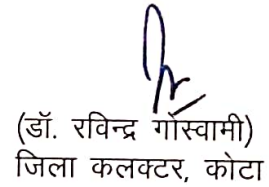 (डॉ. रविन्द्र गोस्वामी)
जिला कलक्टर, कोटा